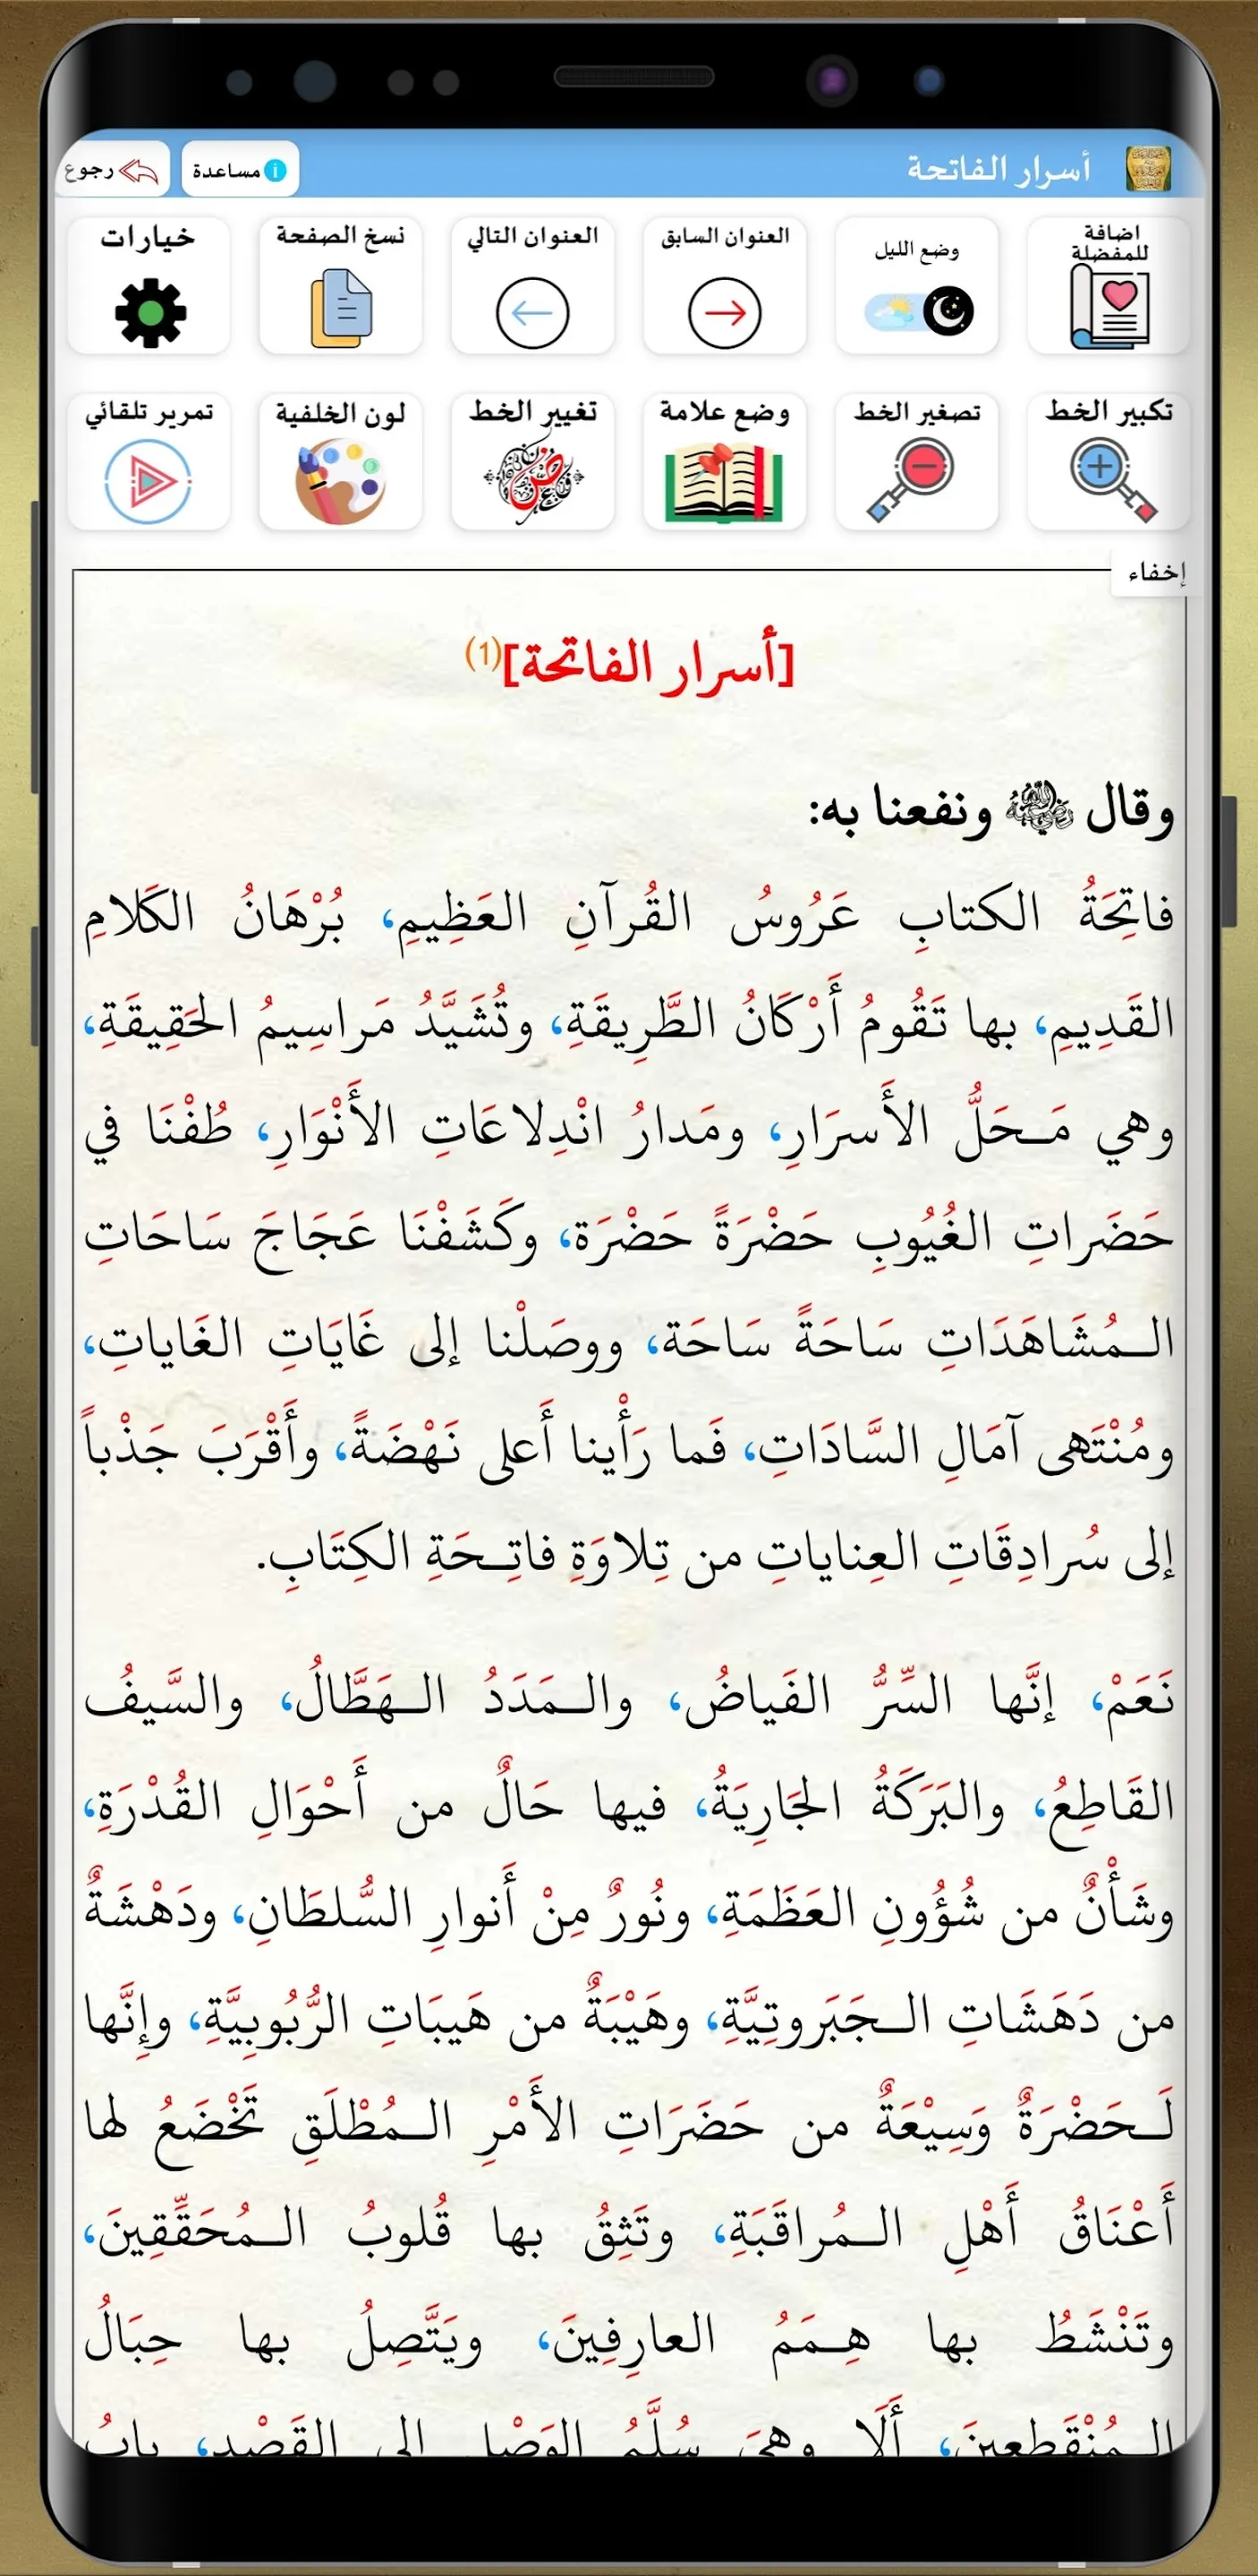 أسرار الفاتحة
مساعدة
رجوع
اضافة
للمفضلة
وضع الليل
العنوان السابق
العنوان التالي
نسخ الصفحة
خيارات
تكبير الخط
تصغير الخط
وضع علامة
تغيير الخط
لون الخلفية
تمرير تلقائي
إخفاء
[أسرار الفاتحة](1)
وقال رضي الله عنه ونفعنا به:
فاتِحَةُ الكتابِ عَرُوسُ القُرآنِ العَظِيمِ، بُرْهَانُ الكَلامِ
القَدِيمِ، بها تَقُومُ أَرْكَانُ الطَّرِيقَةِ، وتُشَيَّدُ مَراسِيمُ الحَقِيقَةِ،
وهي مَـحَلُّ الأَسرَارِ، ومَدارُ انْدِلاعَاتِ الأَنْوَارِ، طُفْنَا في
حَضَراتِ الغُيُوبِ حَضْرَةً حَضْرَة، وكَشَفْنَا عَجَاجَ سَاحَاتِ
الـمُشَاهَدَاتِ سَاحَةً سَاحَة، ووصَلْنا إلى غَايَاتِ الغَاياتِ،
ومُنْتَهى آمَالِ السَّادَاتِ، فَما رَأْينا أَعلى نَهْضَةً، وأَقْرَبَ جَذْباً
إلى سُرادِقَاتِ العِناياتِ من تِلاوَةِ فاتِـحَةِ الكِتَابِ.
نَعَمْ، إنَّها السِّرُّ الفَياضُ، والـمَدَدُ الـهَطَّالُ، والسَّيفُ
القَاطِعُ، والبَرَكَةُ الجَارِيَةُ، فيها حَالٌ من أَحْوَالِ القُدْرَةِ،
وشَأْنٌ من شُؤُونِ العَظَمَةِ، ونُورٌ مِنْ أَنوارِ السُّلطَانِ، ودَهْشَةٌ
من دَهَشَاتِ الـجَبَروتِيَّةِ، وهَيْبَةٌ من هَيبَاتِ الرُّبُوبِيَّةِ، وإِنَّها
لَـحَضْرَةٌ وَسِيْعَةٌ من حَضَرَاتِ الأَمْرِ الـمُطْلَقِ تَخْضَعُ لها
أَعْنَاقُ أَهْلِ الـمُراقَبَةِ، وتَثِقُ بها قُلوبُ الـمُحَقِّقِينَ،
وتَنْشَطُ بها هِـمَمُ العارِفِينَ، ويَتَّصِلُ بها حِبَالُ
الـمُنْقَطِعِينَ، أَلَا وهيَ سُلَّمُ الوَصْلِ إلى القَصْدِ، بابُ